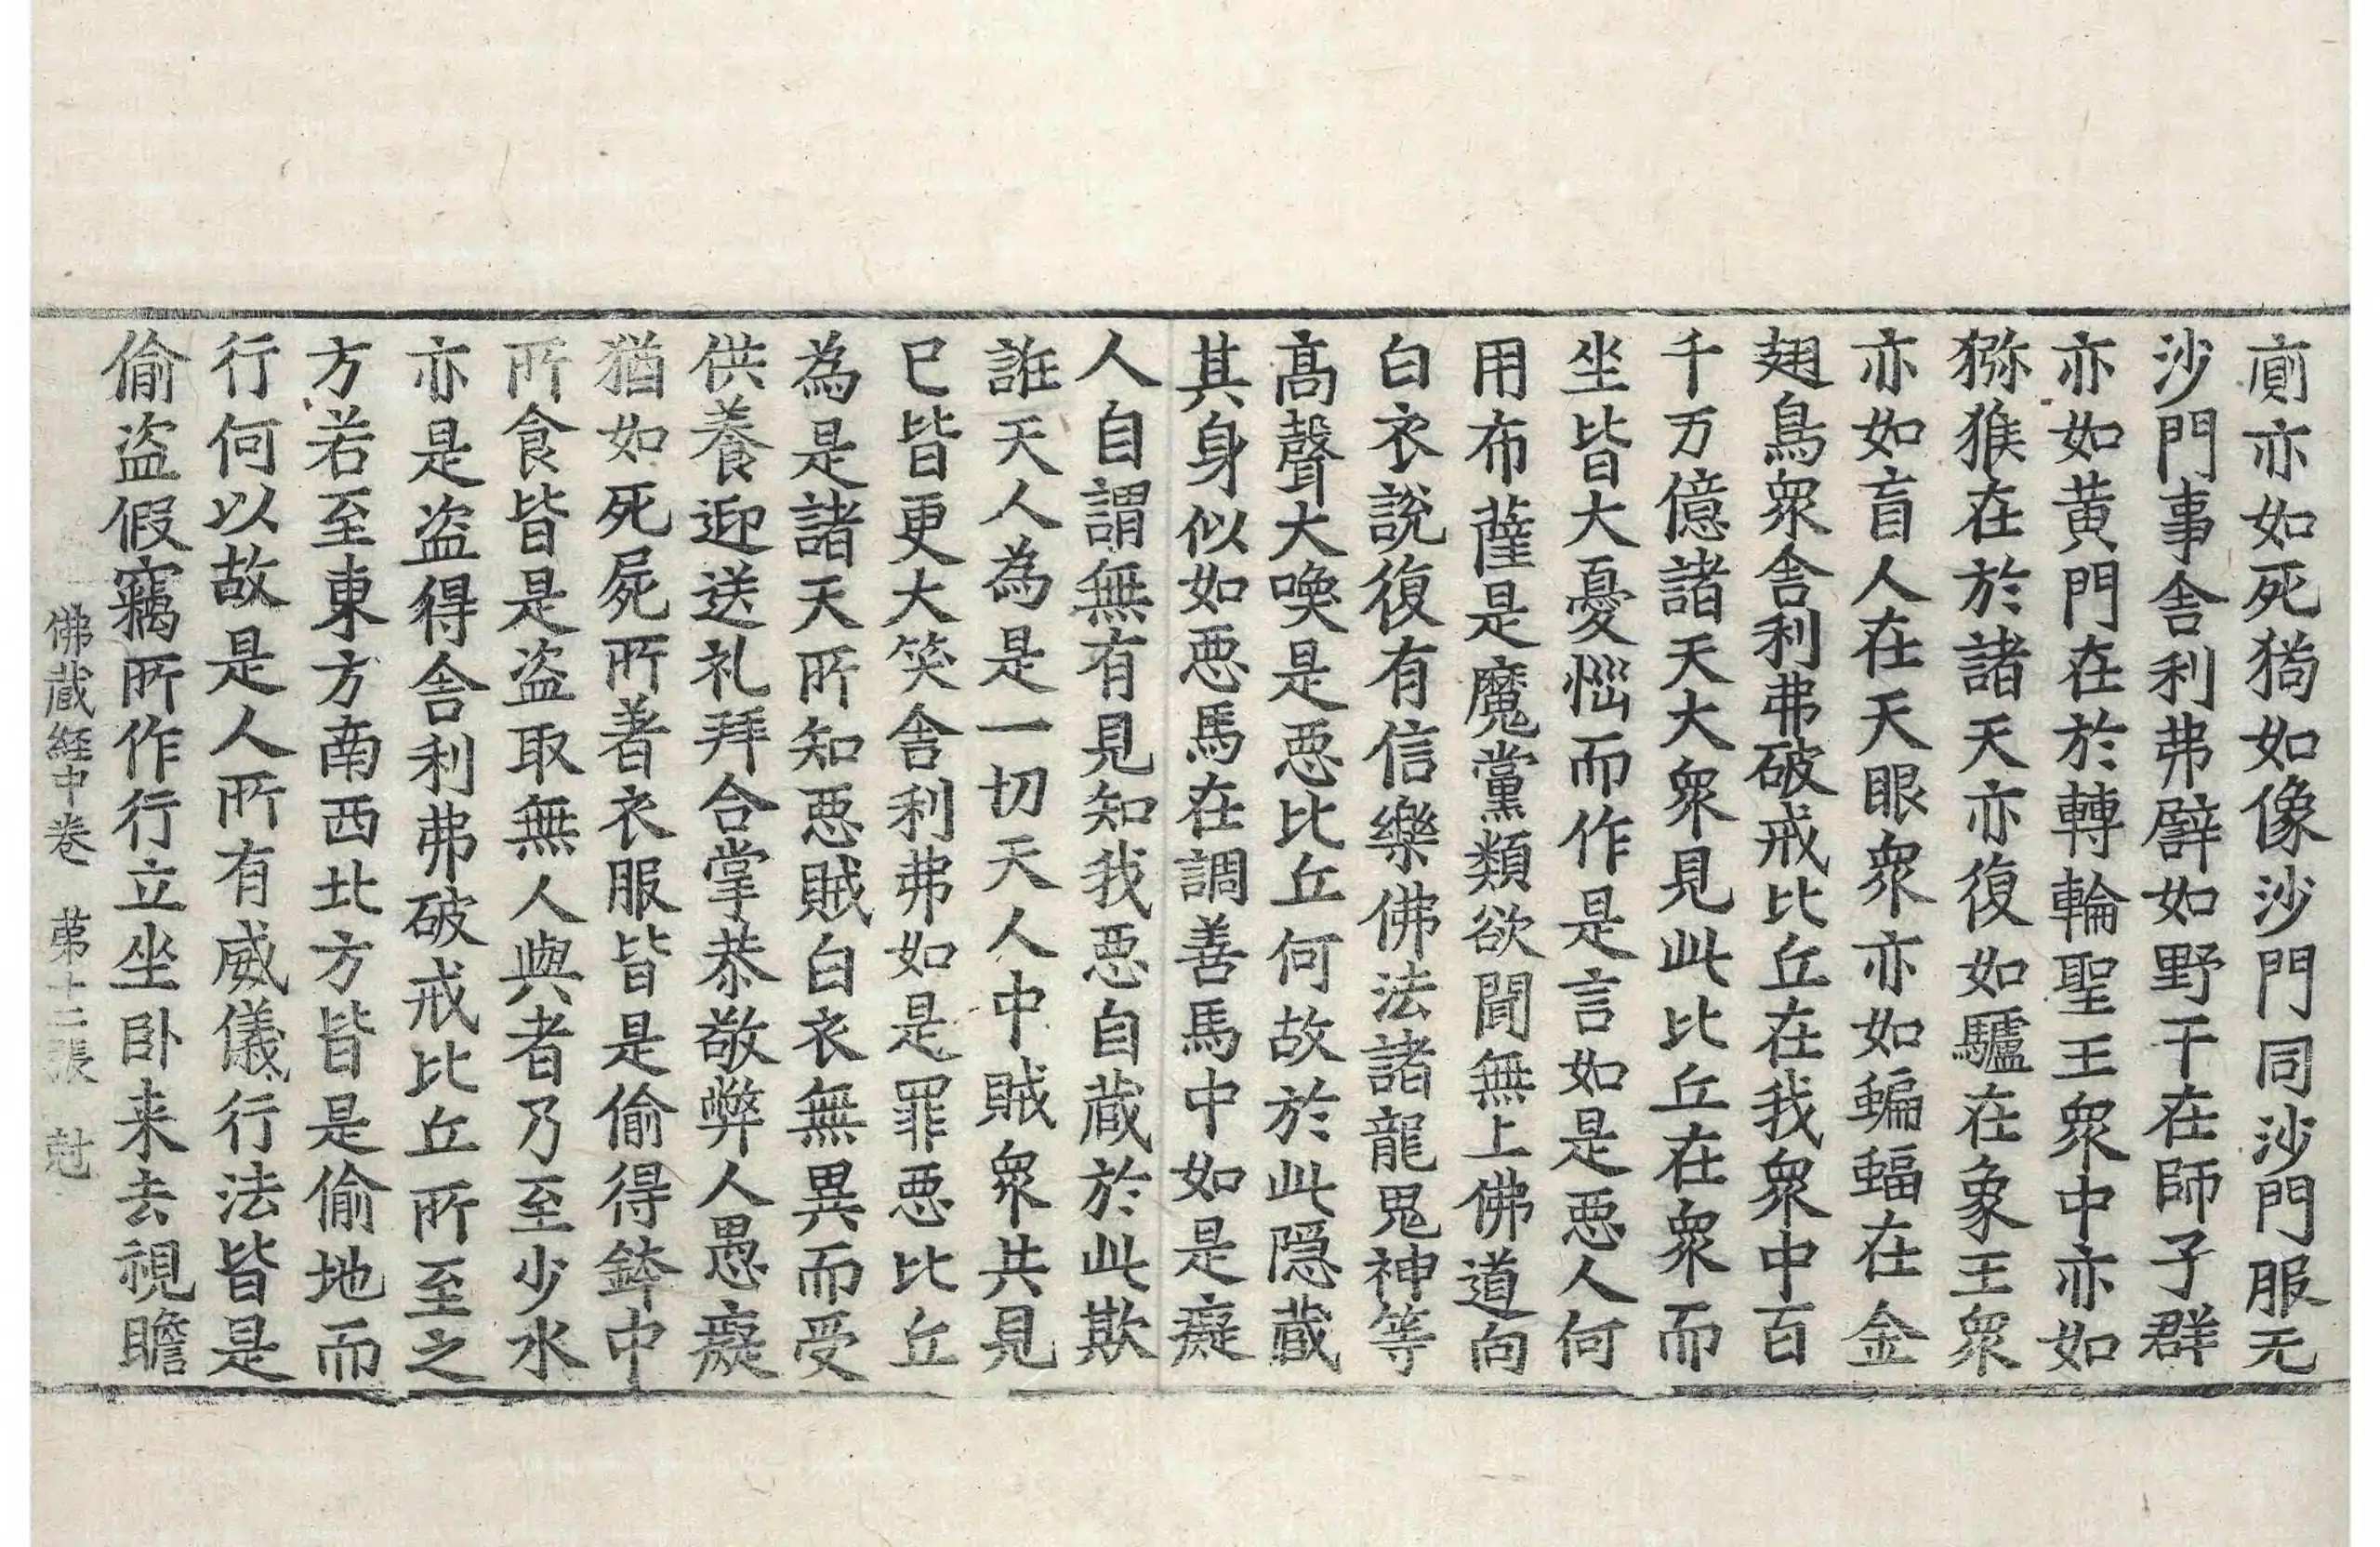 廁亦如死猶如像沙門同沙門服无
沙門事舎利弗譬如野干在師子群
亦如黄門在於轉輪聖王衆中亦如
猕猴在於諸天亦復如驢在象王衆
亦如盲人在天眼衆亦如蝙蝠在金
翅鳥衆舎利弗破戒比丘在我衆中百
千万億諸天大衆見此比丘在衆而
坐皆大憂惱而作是言如是惡人何
用布薩是魔黨類欲聞無上佛道向
白衣說復有信樂佛法諸龍鬼神等
髙聲大喚是惡比丘何故於此隱蔵
其身似如惡馬在調善馬中如是癡
人自謂無有見知我惡自蔵於此欺
誑天人為是一切天人中賊衆共見
已皆更大笑舎利弗如是罪惡比丘
為是諸天所知惡賊白衣無異而受
供養迎送礼拜合掌恭敬弊人愚癡
猶如死屍所著衣服皆是偷得鉢中
所食皆是盗取無人與者乃至少水
亦是盗得舎利弗破戒比丘所至之
方若至東方南西北方皆是偷地而
行何以故是人所有威儀行法皆是
偷盗假竊所作行立坐卧来去視瞻
佛蔵経中卷 苐十二張